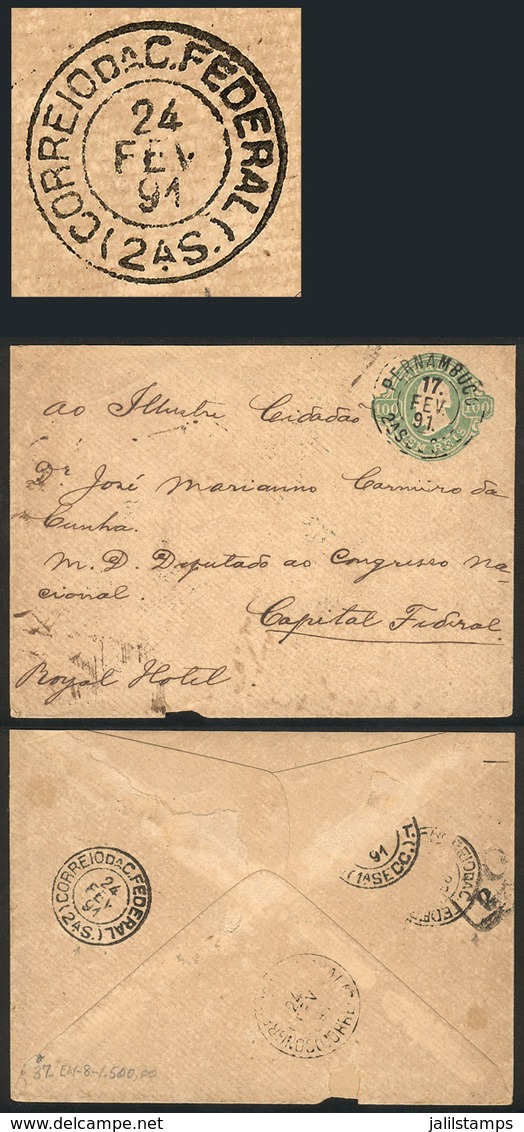 CORREIO DA C. FEDERAL
24
FEV.
91
(2AS.)
PERNAMBUCO
17.
FEV.
91.
100 100
CEM REIS
Ao Illustre Cidadão
Dr. José Marianno Carneiro da
Cunha.
M. D. Deputado ao Congresso Na-
cional.
Capital Federal
Royal Hotel
CORREIO DA C. FEDERAL
24
FEV
91
(2AS.)
91
(1ª SECC.)
24
37 EN-8-1.500,00
jalilstamps